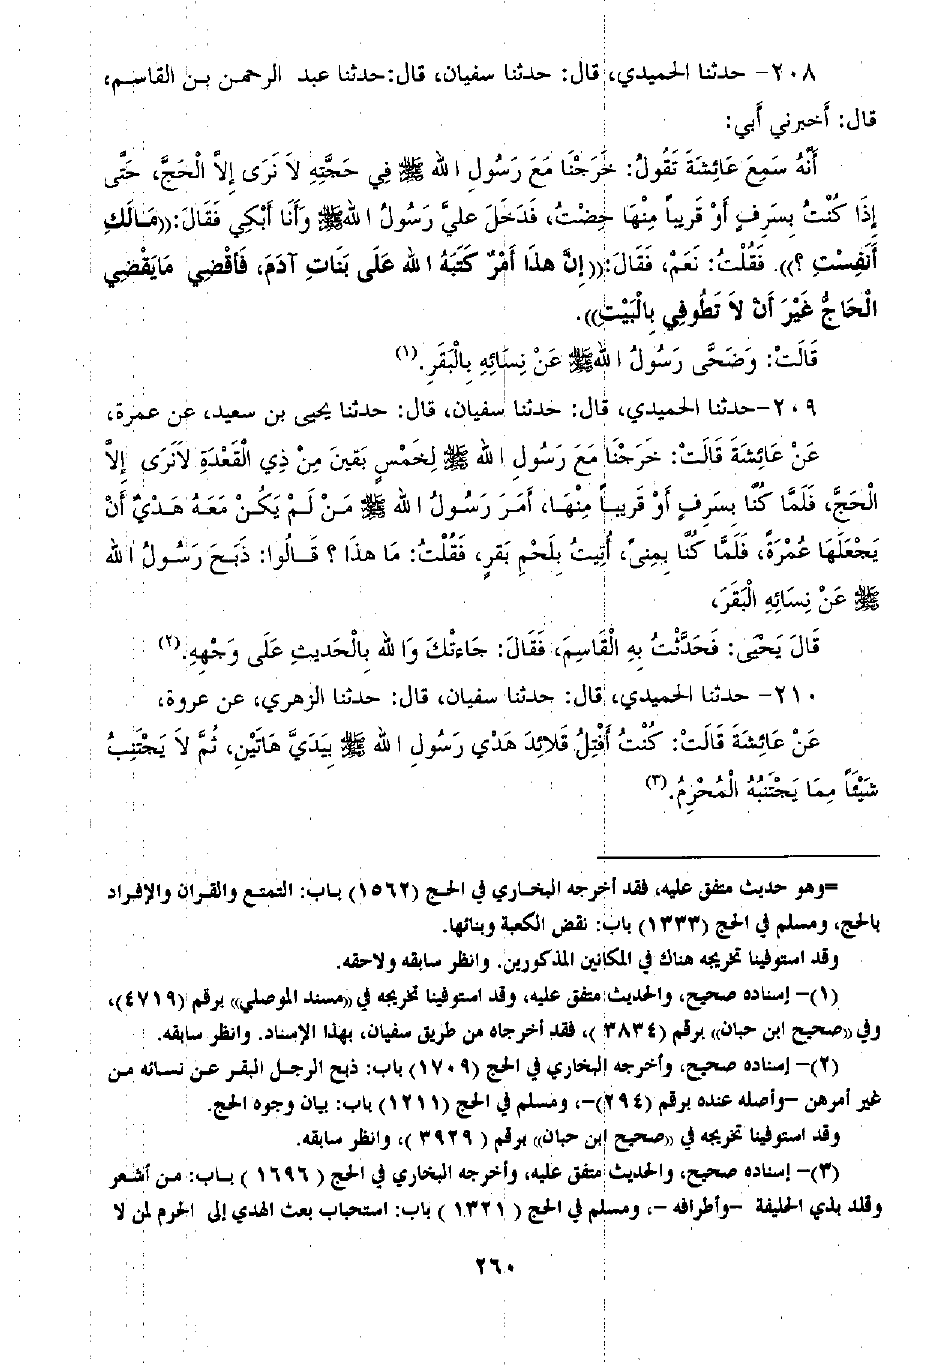 ٢٠٨- حدثنا الحميدي، قال: حدثنا سفيان، قال:حدثنا عبد الرحمن بن القاسم،
قال: أخبرني أبي:
أَنَّهُ سَمِعَ عَائِشَةَ تَقُولُ: خَرَجْنَا مَعَ رَسُولِ اللهِ ﷺ فِي حَجَّتِهِ لاَ نَرَى إِلاَّ الْحَجَّ، حَتَّى
إِذَا كُنْتُ بِسَرِفٍ أَوْ قَرِيباً مِنْهَا حِضْتُ، فَدَخَلَ عليَّ رَسُولُ اللهِ ﷺ وَأَنا أَبْكِي فَقَالَ:((مَالَكِ
أَنَفِسْتِ ؟)). فَقُلْتُ: نَعَمْ، فَقَالَ:((إِنَّ هذَا أَمْرٌ كَتَبَهُ اللهُ عَلَى بَنَاتِ آدَمَ، فَاقْضِي مَايَقْضِي
الْحَاجُّ غَيْرَ أَنْ لاَ تَطُوفِي بِالْبَيْتِ)).
قَالَتْ: وَضَحَّى رَسُولُ اللهِ ﷺ عَنْ نِسَائِهِ بِالْبَقَرِ.(١)
٢٠٩-حدثنا الحميدي، قال: حدثنا سفيان، قال: حدثنا يحيى بن سعيد، عن عمرة،
عَنْ عَائِشَةَ قَالَتْ: خَرَجْنَا مَعَ رَسُولِ اللهِ ﷺ لِخَمْسٍ بَقِينَ مِنْ ذِي الْقَعْدَةِ لاَنَرَى إِلاَّ
الْحَجَّ، فَلَمَّا كُنَّا بِسَرِفٍ أَوْ قَرِيباً مِنْهَا، أَمَرَ رَسُولُ اللهِ ﷺ مَنْ لَمْ يَكُنْ مَعَهُ هَدْيٌ أَنْ
يَجْعَلَهَا عُمْرَةً، فَلَمَّا كُنَّا بِمِنىً، أُتِيتُ بِلَحْمِ بَقَرٍ، فَقُلْتُ: مَا هذَا ؟ قَالُوا: ذَبَحَ رَسُولُ اللهِ
ﷺ عَنْ نِسَائِهِ الْبَقَرَ،
قَالَ يَحْيَى: فَحَدَّثْتُ بِهِ الْقَاسِمَ، فَقَالَ: جَاءتْكَ وَاللهِ بِالْحَدِيثِ عَلَى وَجْهِهِ.(٢)
٢١٠- حدثنا الحميدي، قال: حدثنا سفيان، قال: حدثنا الزهري، عن عروة،
عَنْ عَائِشَةَ قَالَتْ: كُنْتُ أَفْتِلُ قَلاَئِدَ هَدْيِ رَسُولِ اللهِ ﷺ بِيَدَيَّ هَاتَيْنِ، ثُمَّ لاَ يَجْتَنِبُ
شَيْئاً مِمَا يَجْتَنِبُهُ الْمُحْرِمُ.(٣)
=وهو حديث متفق عليه، فقد أخرجه البخاري في الحج (١٥٦٢) باب: التمتع والقران والإفراد
بالحج، ومسلم في الحج (١٣٣٣) باب: نقض الكعبة وبنائها.
وقد استوفينا تخريجه هناك في المكانين المذكورين. وانظر سابقه ولاحقه.
(١)- إسناده صحيح، والحديث متفق عليه، وقد استوفينا تخريجه في((مسند الموصلي)) برقم (٤٧١٩)،
وفي((صحيح ابن حبان)) برقم (٣٨٣٤ )، فقد أخرجاه من طريق سفيان، بهذا الإسناد. وانظر سابقه.
(٢)- إسناده صحيح، وأخرجه البخاري في الحج (١٧٠٩) باب: ذبح الرجل البقر عن نسائه من
غير أمرهن -وأصله عنده برقم (٢٩٤)-، ومسلم في الحج (١٢١١) باب: بيان وجوه الحج.
وقد استوفينا تخريجه في ((صحيح ابن حبان)) برقم ( ٣٩٢٩ )، وانظر سابقه.
(٣)- إسناده صحيح، والحديث متفق عليه، وأخرجه البخاري في الحج ( ١٦٩٦ ) باب: من أشعر
وقلد بذي الحليفة -وأطرافه -، ومسلم في الحج ( ١٣٢١ ) باب: استحباب بعث الهدي إلى الحرم لمن لا
٢٦٠